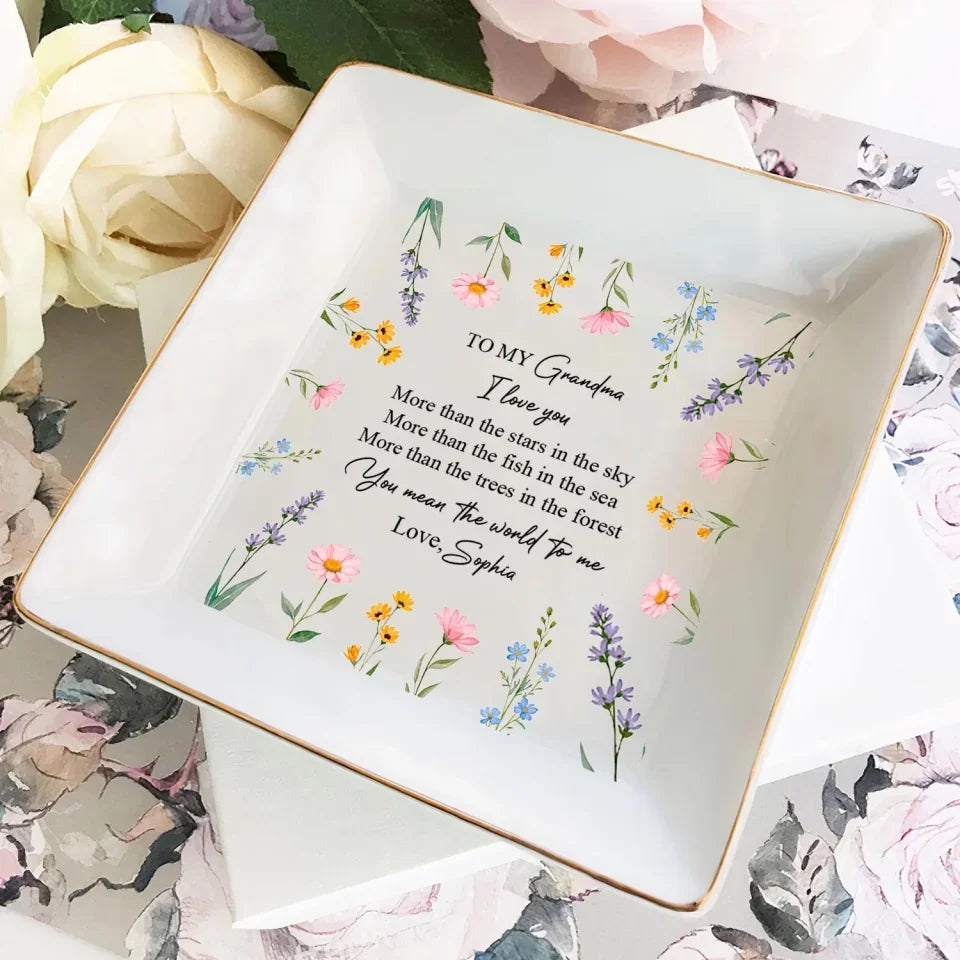 TO MY Grandma
I love you
More than the stars in the sky
More than the fish in the sea
More than the trees in the forest
You mean the world to me
Love, Sophia